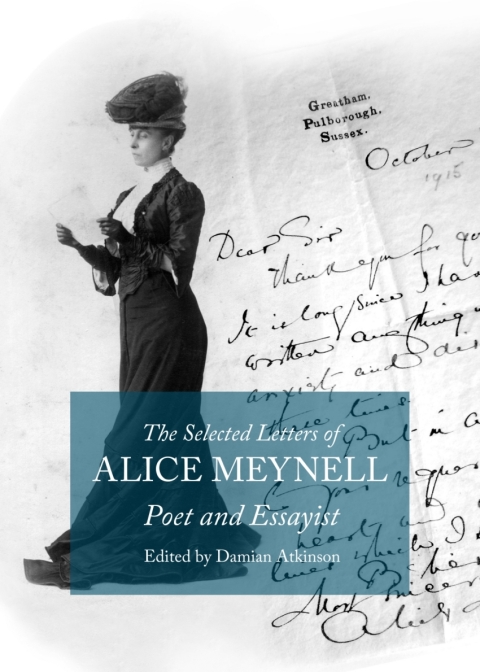 Greatham,
Pulborough,
Sussex.
October
1915
Dear Sir
Thank you for
It is long since I
written anything
anxiety and
these times
But in
your
hearty and
lines which I
Most
Alice
The Selected Letters of
ALICE MEYNELL
Poet and Essayist
Edited by Damian Atkinson